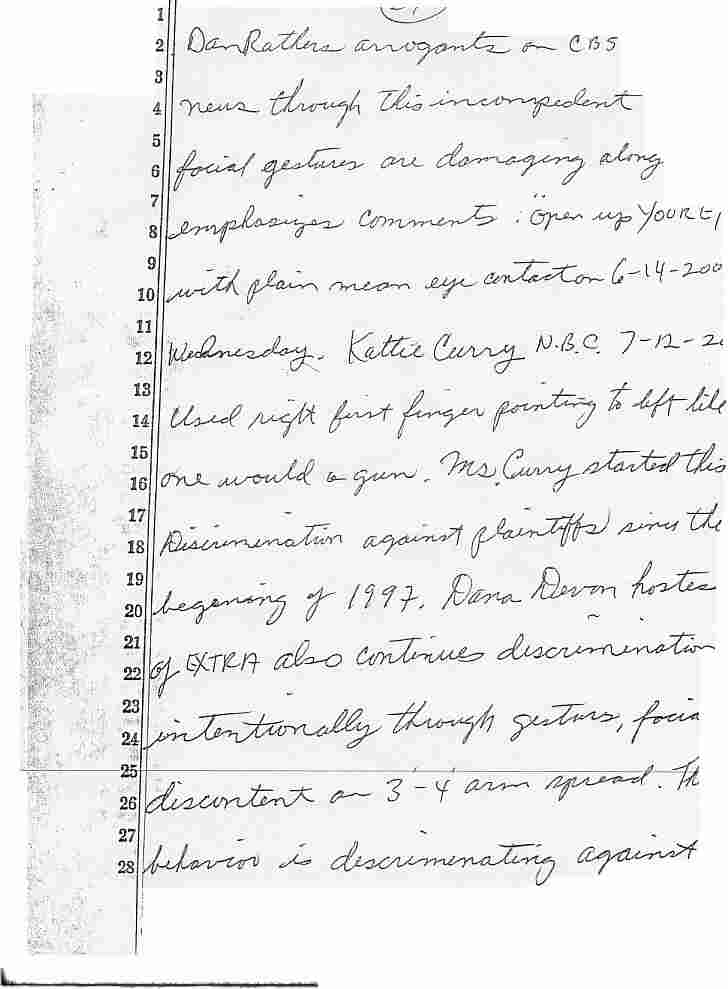 1
2 Dan Rathers arrogants on CBS
3
4 news through this incompedent
5
6 facial gestures are damaging along
7
8 emphasizes comments: "open up YOUR E
9
10 with plain mean eye contact on 6-14-200
11
12 Wednesday. Kattie Curry N.B.C. 7-12-2
13
14 Used right first finger pointing to left like
15
16 one would a gun. Ms. Curry started this
17
18 Discrimenation against plaintiffs since the
19
20 begenning of 1997. Dana Devon hostes
21
22 of EXTRA also continues discrimenation
23
24 intentionally through gesturs, facia
25
26 discontent on 3'-4' arm spread. Th
27
28 behavior is descrimenating against